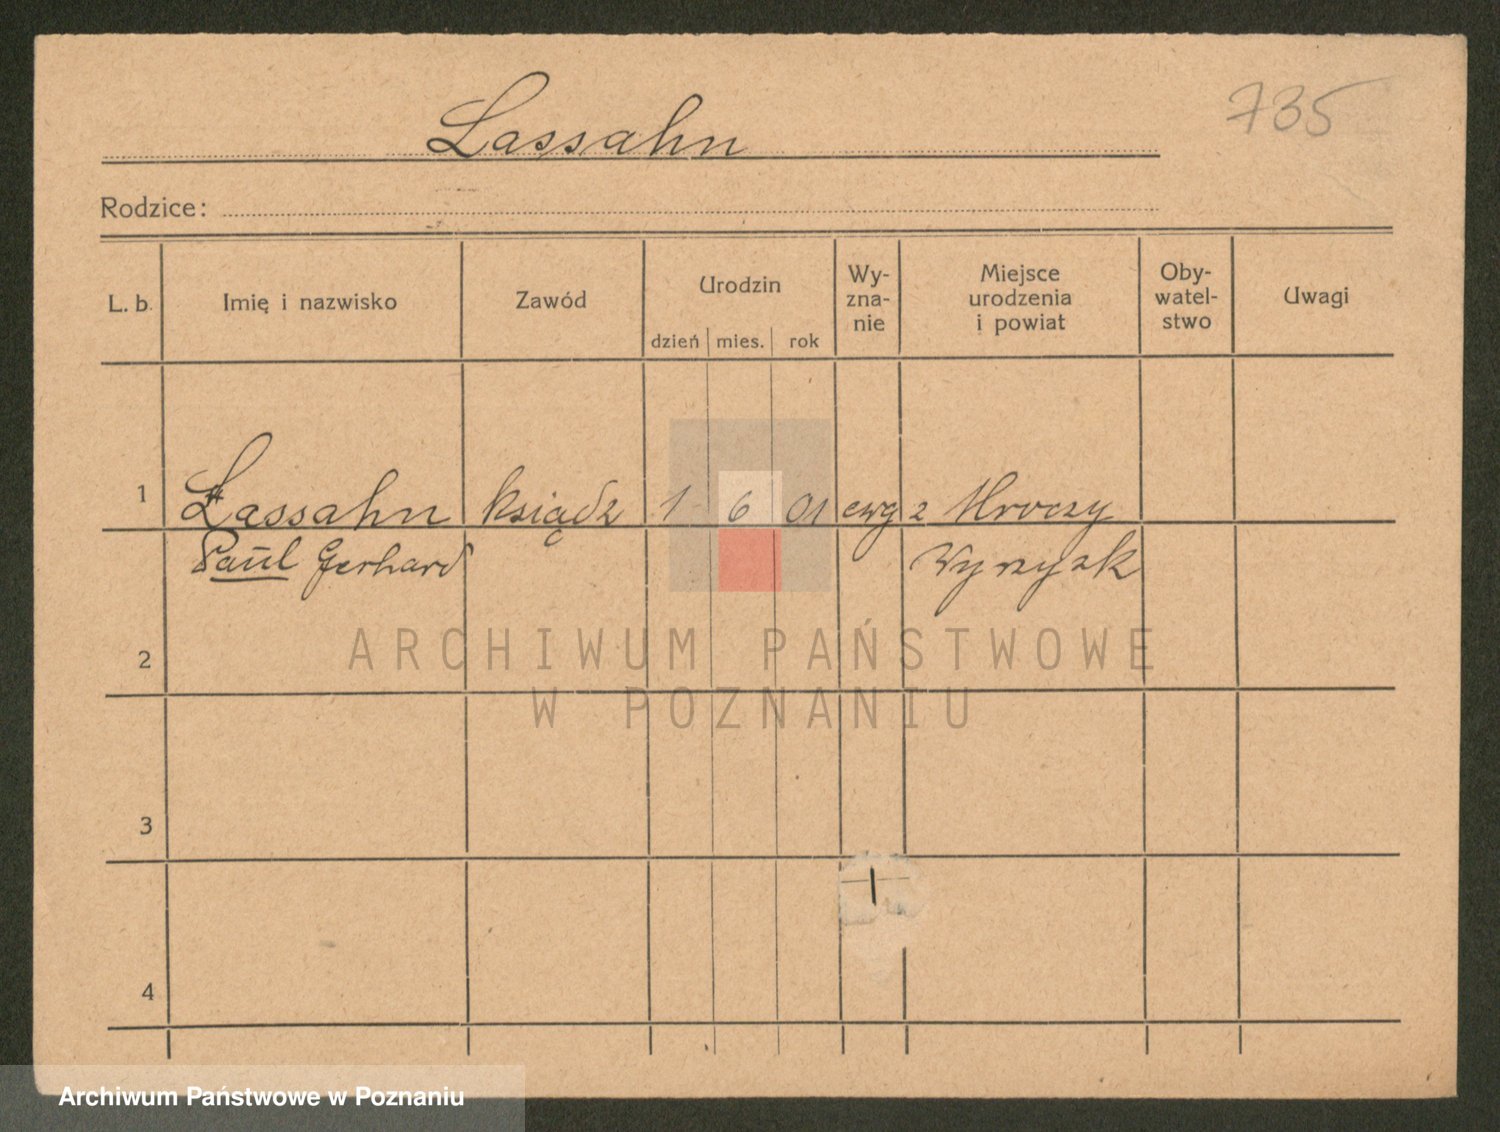 Lassahn
735
Rodzice:
L. b. Imię i nazwisko Zawód Urodzin Wy-zna-nie Miejsce urodzenia i powiat Oby-watel-stwo Uwagi
dzień mies. rok
1 Lassahn ksiądz 1 6 01 ewg z Mroczy
Paul Gerhard Wyrzysk
2
ARCHIWUM PAŃSTWOWE
W POZNANIU
3
4
Archiwum Państwowe w Poznaniu